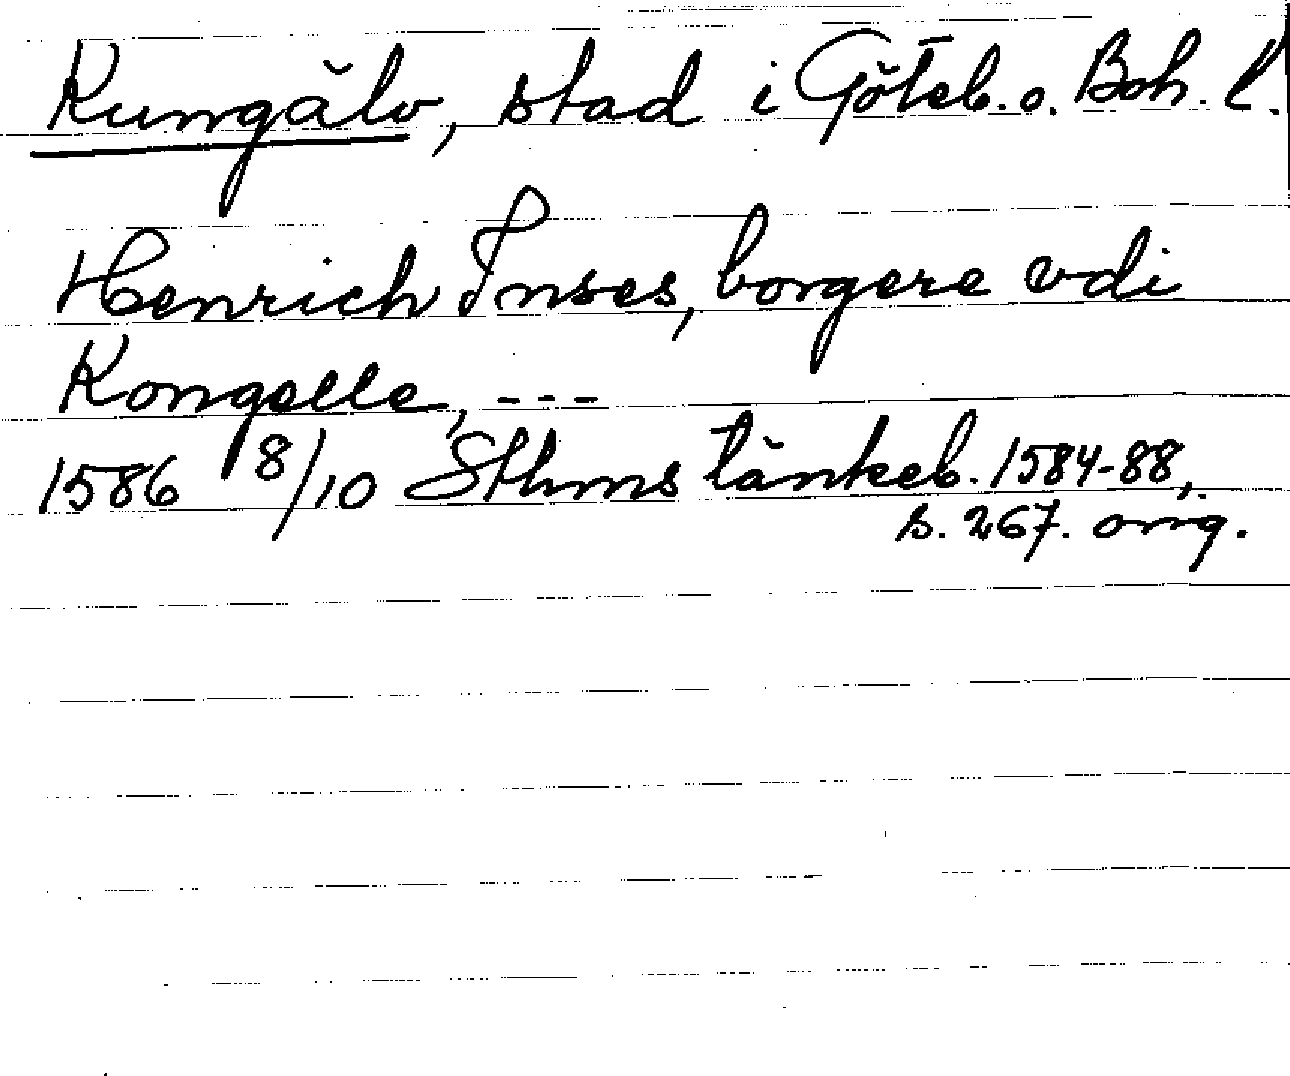 Kungälv, stad i Göteb. o. Boh. l.
Henrich Jnses, borgere vdi
Kongelle, ---
1586 8/10 Sthms tänkeb. 1584-88,
s. 267. orig.